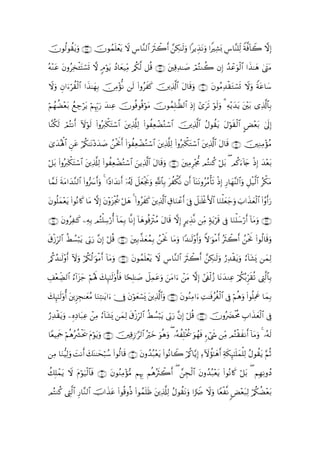 إِلَّا كَآفَّةً لِّلنَّاسِ بَشِيرًا وَنَذِيرًا وَلَٰكِنَّ أَكْثَرَ ٱلنَّاسِ لَا يَعْلَمُونَ ۝ وَيَقُولُونَ
مَتَىٰ هَٰذَا ٱلْوَعْدُ إِن كُنتُمْ صَٰدِقِينَ ۝ قُل لَّكُم مِّيعَادُ يَوْمٍ لَّا تَسْتَـْٔخِرُونَ عَنْهُ
سَاعَةً وَلَا تَسْتَقْدِمُونَ ۝ وَقَالَ ٱلَّذِينَ كَفَرُوا۟ لَن نُّؤْمِنَ بِهَٰذَا ٱلْقُرْءَانِ وَلَا
بِٱلَّذِى بَيْنَ يَدَيْهِ ۗ وَلَوْ تَرَىٰٓ إِذِ ٱلظَّٰلِمُونَ مَوْقُوفُونَ عِندَ رَبِّهِمْ يَرْجِعُ بَعْضُهُمْ
إِلَىٰ بَعْضٍ ٱلْقَوْلَ يَقُولُ ٱلَّذِينَ ٱسْتُضْعِفُوا۟ لِلَّذِينَ ٱسْتَكْبَرُوا۟ لَوْلَآ أَنتُمْ لَكُنَّا
مُؤْمِنِينَ ۝ قَالَ ٱلَّذِينَ ٱسْتَكْبَرُوا۟ لِلَّذِينَ ٱسْتُضْعِفُوٓا۟ أَنَحْنُ صَدَدْنَٰكُمْ عَنِ ٱلْهُدَىٰ
بَعْدَ إِذْ جَآءَكُم ۖ بَلْ كُنتُم مُّجْرِمِينَ ۝ وَقَالَ ٱلَّذِينَ ٱسْتُضْعِفُوا۟ لِلَّذِينَ ٱسْتَكْبَرُوا۟ بَلْ
مَكْرُ ٱلَّيْلِ وَٱلنَّهَارِ إِذْ تَأْمُرُونَنَآ أَن نَّكْفُرَ بِٱللَّهِ وَنَجْعَلَ لَهُۥٓ أَندَادًا ۚ وَأَسَرُّوا۟ ٱلنَّدَامَةَ لَمَّا
رَأَوُا۟ ٱلْعَذَابَ وَجَعَلْنَا ٱلْأَغْلَٰلَ فِىٓ أَعْنَاقِ ٱلَّذِينَ كَفَرُوا۟ ۚ هَلْ يُجْزَوْنَ إِلَّا مَا كَانُوا۟ يَعْمَلُونَ
۝ وَمَآ أَرْسَلْنَا فِى قَرْيَةٍ مِّن نَّذِيرٍ إِلَّا قَالَ مُتْرَفُوهَآ إِنَّا بِمَآ أُرْسِلْتُم بِهِۦ كَٰفِرُونَ ۝
وَقَالُوا۟ نَحْنُ أَكْثَرُ أَمْوَٰلًا وَأَوْلَٰدًا وَمَا نَحْنُ بِمُعَذَّبِينَ ۝ قُلْ إِنَّ رَبِّى يَبْسُطُ ٱلرِّزْقَ
لِمَن يَشَآءُ وَيَقْدِرُ وَلَٰكِنَّ أَكْثَرَ ٱلنَّاسِ لَا يَعْلَمُونَ ۝ وَمَآ أَمْوَٰلُكُمْ وَلَآ أَوْلَٰدُكُم
بِٱلَّتِى تُقَرِّبُكُمْ عِندَنَا زُلْفَىٰٓ إِلَّا مَنْ ءَامَنَ وَعَمِلَ صَٰلِحًا فَأُو۟لَٰٓئِكَ لَهُمْ جَزَآءُ ٱلضِّعْفِ
بِمَا عَمِلُوا۟ وَهُمْ فِى ٱلْغُرُفَٰتِ ءَامِنُونَ ۝ وَٱلَّذِينَ يَسْعَوْنَ فِىٓ ءَايَٰتِنَا مُعَٰجِزِينَ أُو۟لَٰٓئِكَ
فِى ٱلْعَذَابِ مُحْضَرُونَ ۝ قُلْ إِنَّ رَبِّى يَبْسُطُ ٱلرِّزْقَ لِمَن يَشَآءُ مِنْ عِبَادِهِۦ وَيَقْدِرُ
لَهُۥ ۚ وَمَآ أَنفَقْتُم مِّن شَىْءٍ فَهُوَ يُخْلِفُهُۥ ۖ وَهُوَ خَيْرُ ٱلرَّٰزِقِينَ ۝ وَيَوْمَ يَحْشُرُهُمْ جَمِيعًا
ثُمَّ يَقُولُ لِلْمَلَٰٓئِكَةِ أَهَٰٓؤُلَآءِ إِيَّاكُمْ كَانُوا۟ يَعْبُدُونَ ۝ قَالُوا۟ سُبْحَٰنَكَ أَنتَ وَلِيُّنَا مِن
دُونِهِم ۖ بَلْ كَانُوا۟ يَعْبُدُونَ ٱلْجِنَّ ۖ أَكْثَرُهُم بِهِم مُّؤْمِنُونَ ۝ فَٱلْيَوْمَ لَا يَمْلِكُ
بَعْضُكُمْ لِبَعْضٍ نَّفْعًا وَلَا ضَرًّا وَنَقُولُ لِلَّذِينَ ظَلَمُوا۟ ذُوقُوا۟ عَذَابَ ٱلنَّارِ ٱلَّتِى كُنتُم